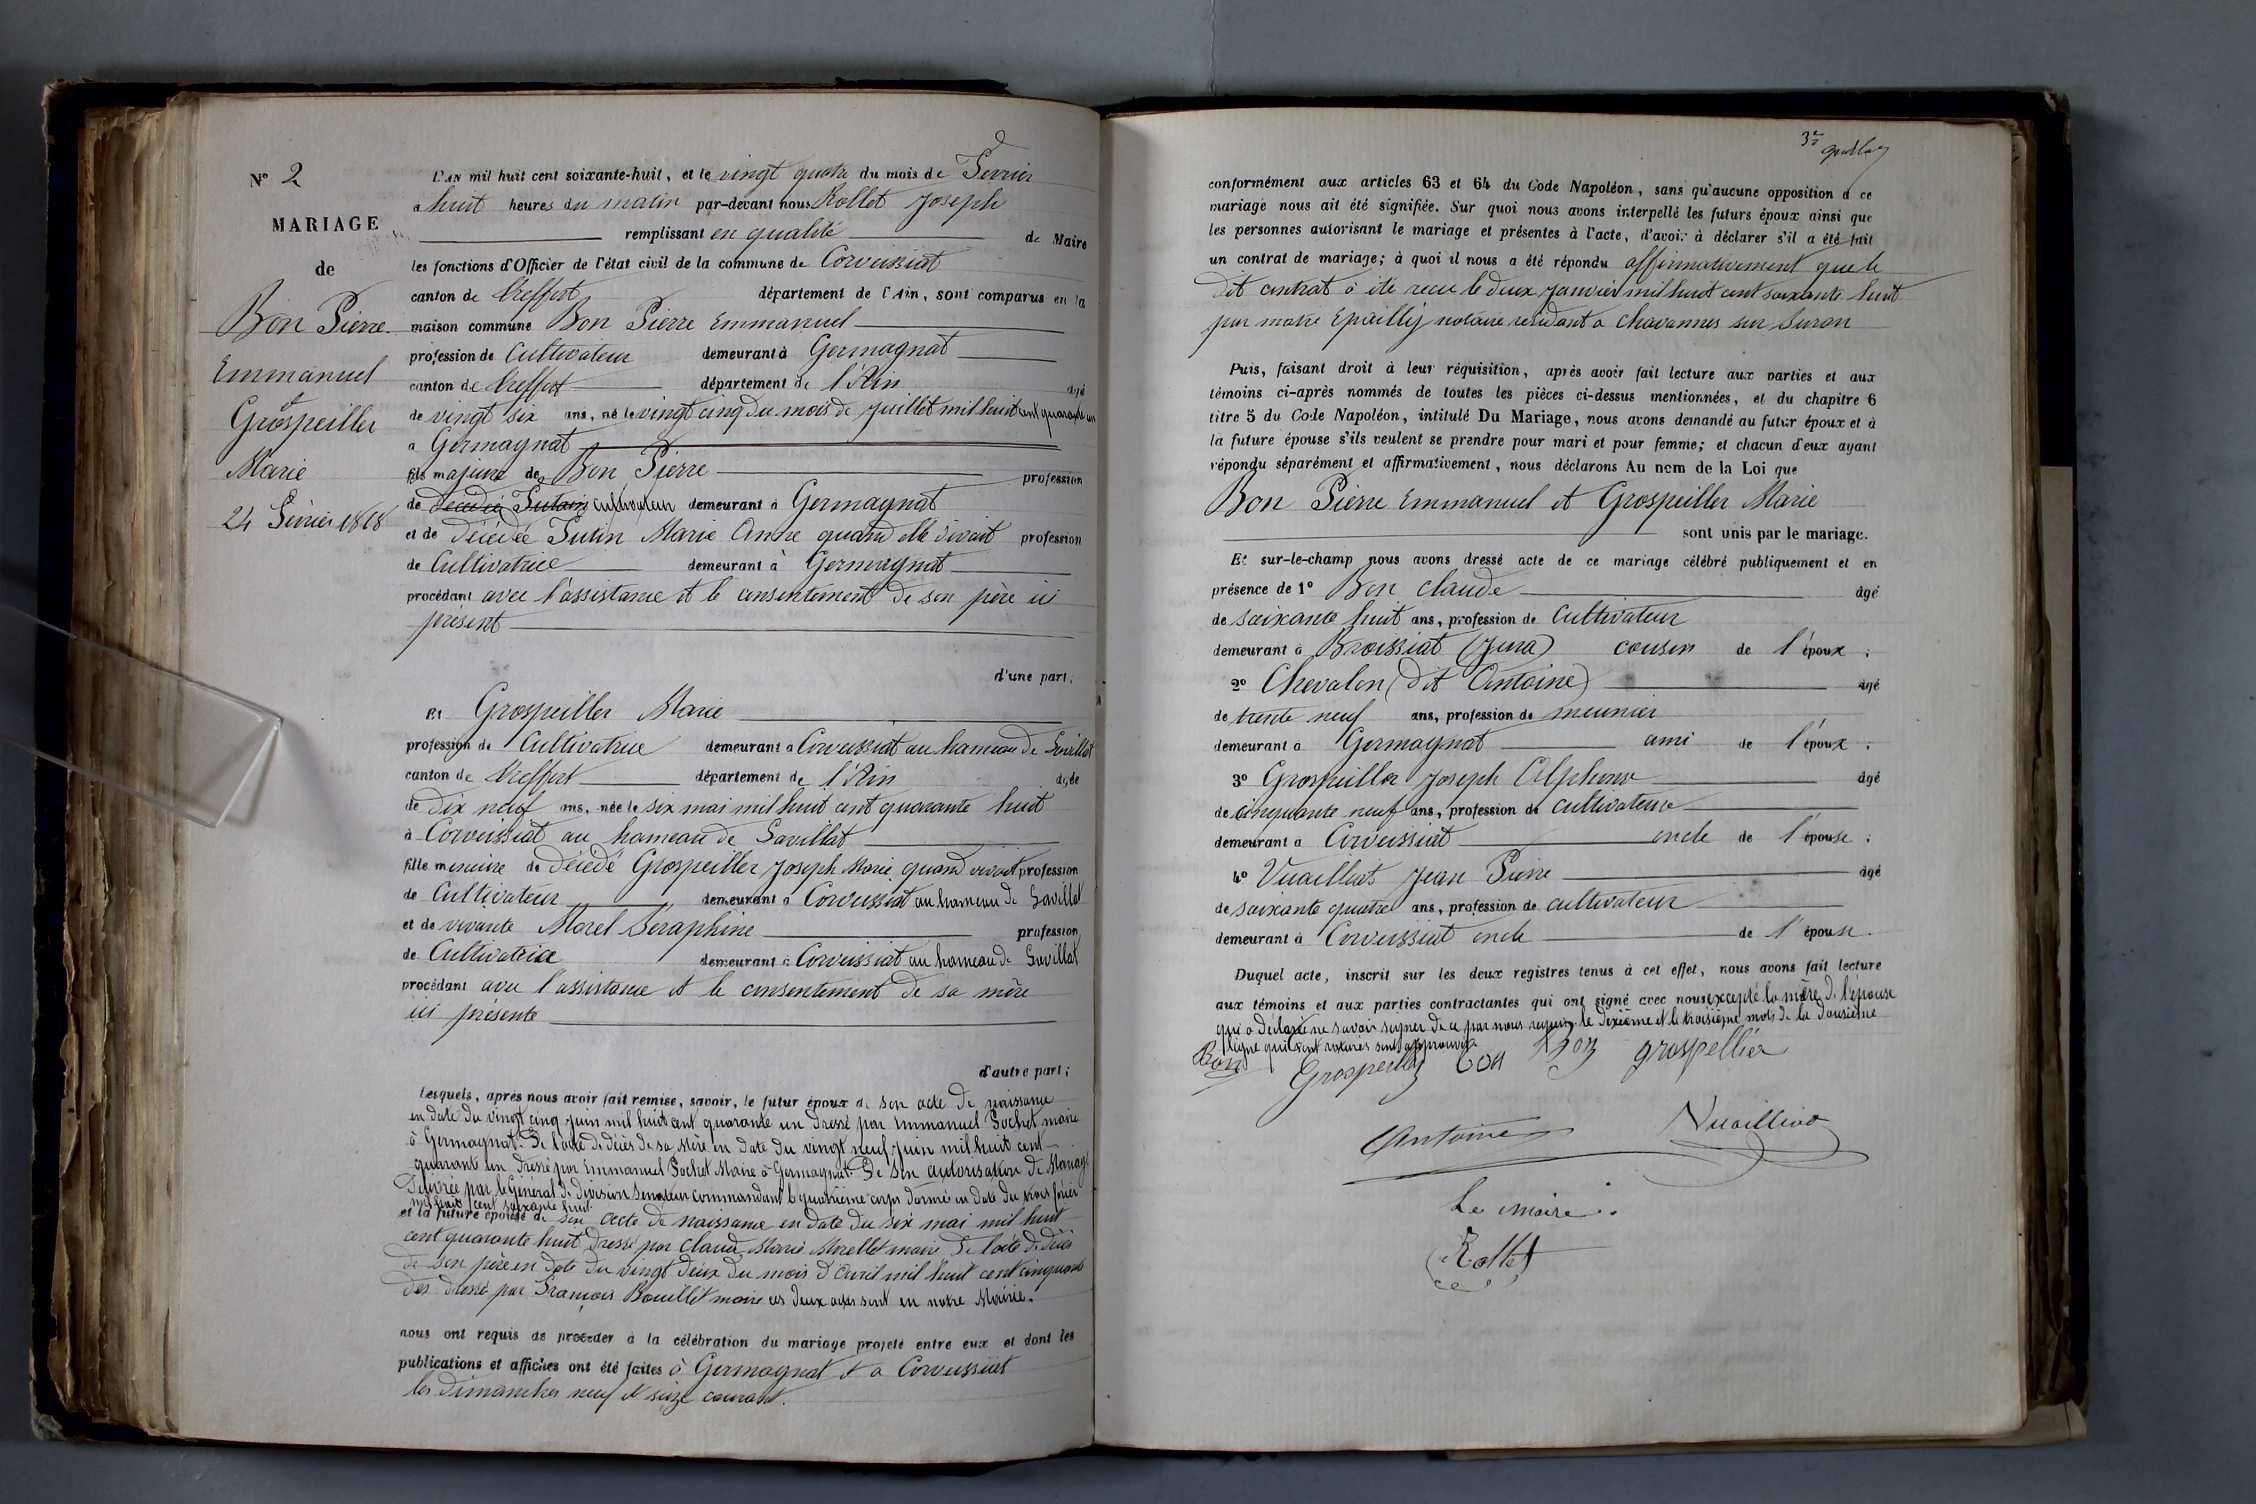 N° 2
MARIAGE
de
Bon Pierre
Emmanuel
et
Grospeiller
Marie
24 Février 1868
L'AN mil huit cent soixante-huit, et le vingt quatre du mois de Février
a huit heures du matin par-devant nous Rollet Joseph
remplissant en qualité de Maire
les fonctions d'Officier de l'état civil de la commune de Corveissiat
canton de Treffort département de l'Ain, sont comparus en la
maison commune Bon Pierre Emmanuel
profession de Cultivateur demeurant à Germagnat
canton de Treffort département de l'Ain âgé
de vingt six ans, né le vingt cinq du mois de Juillet mil huit cent quarante un
a Germagnat
fils majeur de Bon Pierre profession
de décédé Tutain cultivateur demeurant à Germagnat
et de décédée Tutin Marie Anne quand elle vivait profession
de Cultivatrice demeurant à Germagnat
procédant avec l'assistance et le consentement de son père ici
présent
d'une part;
Et Grospeiller Marie
profession de Cultivatrice demeurant a Corveissiat au hameau de Savillat
canton de Treffort département de l'Ain âgée
de dix neuf ans, née le six mai mil huit cent quarante huit
à Corveissiat au hameau de Savillat
fille mineure de décédé Grospeiller Joseph Marie quand vivait profession
de Cultivateur demeurant à Corveissiat au hameau de Savillat
et de vivante Morel Séraphine profession
de Cultivatrice demeurant à Corveissiat au hameau de Savillat
procédant avec l'assistance et le consentement de sa mère
ici présente
d'autre part;
Lesquels, après nous avoir fait remise, savoir, le futur époux de son acte de naissance
en date du vingt cinq juin mil huit cent quarante un dressé par Emmanuel Pochet maire
à Germagnat. De l'acte de décès de sa mère en date du vingt neuf juin mil huit cent
quarante un dressé par Emmanuel Pochet Maire à Germagnat. De son autorisation de Mariage
délivrée par le Général de division Senateur commandant le quatrième corps d'armée en date du trois février
mil huit cent soixante huit.
et la future épouse de son acte de naissance en date du six mai mil huit
cent quarante huit dressé par Claude Marie Morellet maire. De l'acte de décès
de son père en date du vingt deux du mois d'avril mil huit cent cinquante
dressé par François Bouillet maire ces deux actes sont en notre Mairie.
nous ont requis de procéder à la célébration du mariage projeté entre eux et dont les
publications et affiches ont été faites à Germagnat et a Corveissiat
les dimanches neuf et seize courant.
conformément aux articles 63 et 64 du Code Napoléon, sans qu'aucune opposition à ce
mariage nous ait été signifiée. Sur quoi nous avons interpellé les futurs époux ainsi que
les personnes autorisant le mariage et présentes à l'acte, d'avoir à déclarer s'il a été fait
un contrat de mariage; à quoi il nous a été répondu affirmativement que le
dit contrat à été recu le deux janvier mil huit cent soixante huit
par maitre Epailly notaire residant a Chavannes sur Suran
Puis, faisant droit à leur réquisition, après avoir fait lecture aux parties et aux
témoins ci-après nommés de toutes les pièces ci-dessus mentionnées, et du chapitre 6
titre 5 du Code Napoléon, intitulé Du Mariage, nous avons demandé au futur époux et à
la future épouse s'ils veulent se prendre pour mari et pour femme; et chacun d'eux ayant
répondu séparément et affirmativement, nous déclarons Au nom de la Loi que
Bon Pierre Emmanuel et Grospeiller Marie
sont unis par le mariage.
Et sur-le-champ nous avons dressé acte de ce mariage célébré publiquement et en
présence de 1° Bon Claude âgé
de soixante huit ans, profession de Cultivateur
demeurant à Broissiat (Jura) cousin de l'époux;
2° Chevalon (dit Antoine) âgé
de trente neuf ans, profession de meunier
demeurant à Germagnat ami de l'époux;
3° Grospeiller Joseph Alphonse âgé
de cinquante neuf ans, profession de cultivateur
demeurant a Corveissiat oncle de l'épouse;
4° Vuaillat Jean Pierre âgé
de soixante quatre ans, profession de cultivateur
demeurant à Corveissiat oncle de l'épouse.
Duquel acte, inscrit sur les deux registres tenus à cet effet, nous avons fait lecture
aux témoins et aux parties contractantes qui ont signé avec nous excepté la mère de l'épouse
qui a déclaré ne savoir signer de ce par nous requis. le dixième et le troisième mots de la dousième
ligne qui sont raturés sont approuvés
Bon Grospeiller bon Bon grospellier
Antoine Vuaillat
Le maire.
Rollet